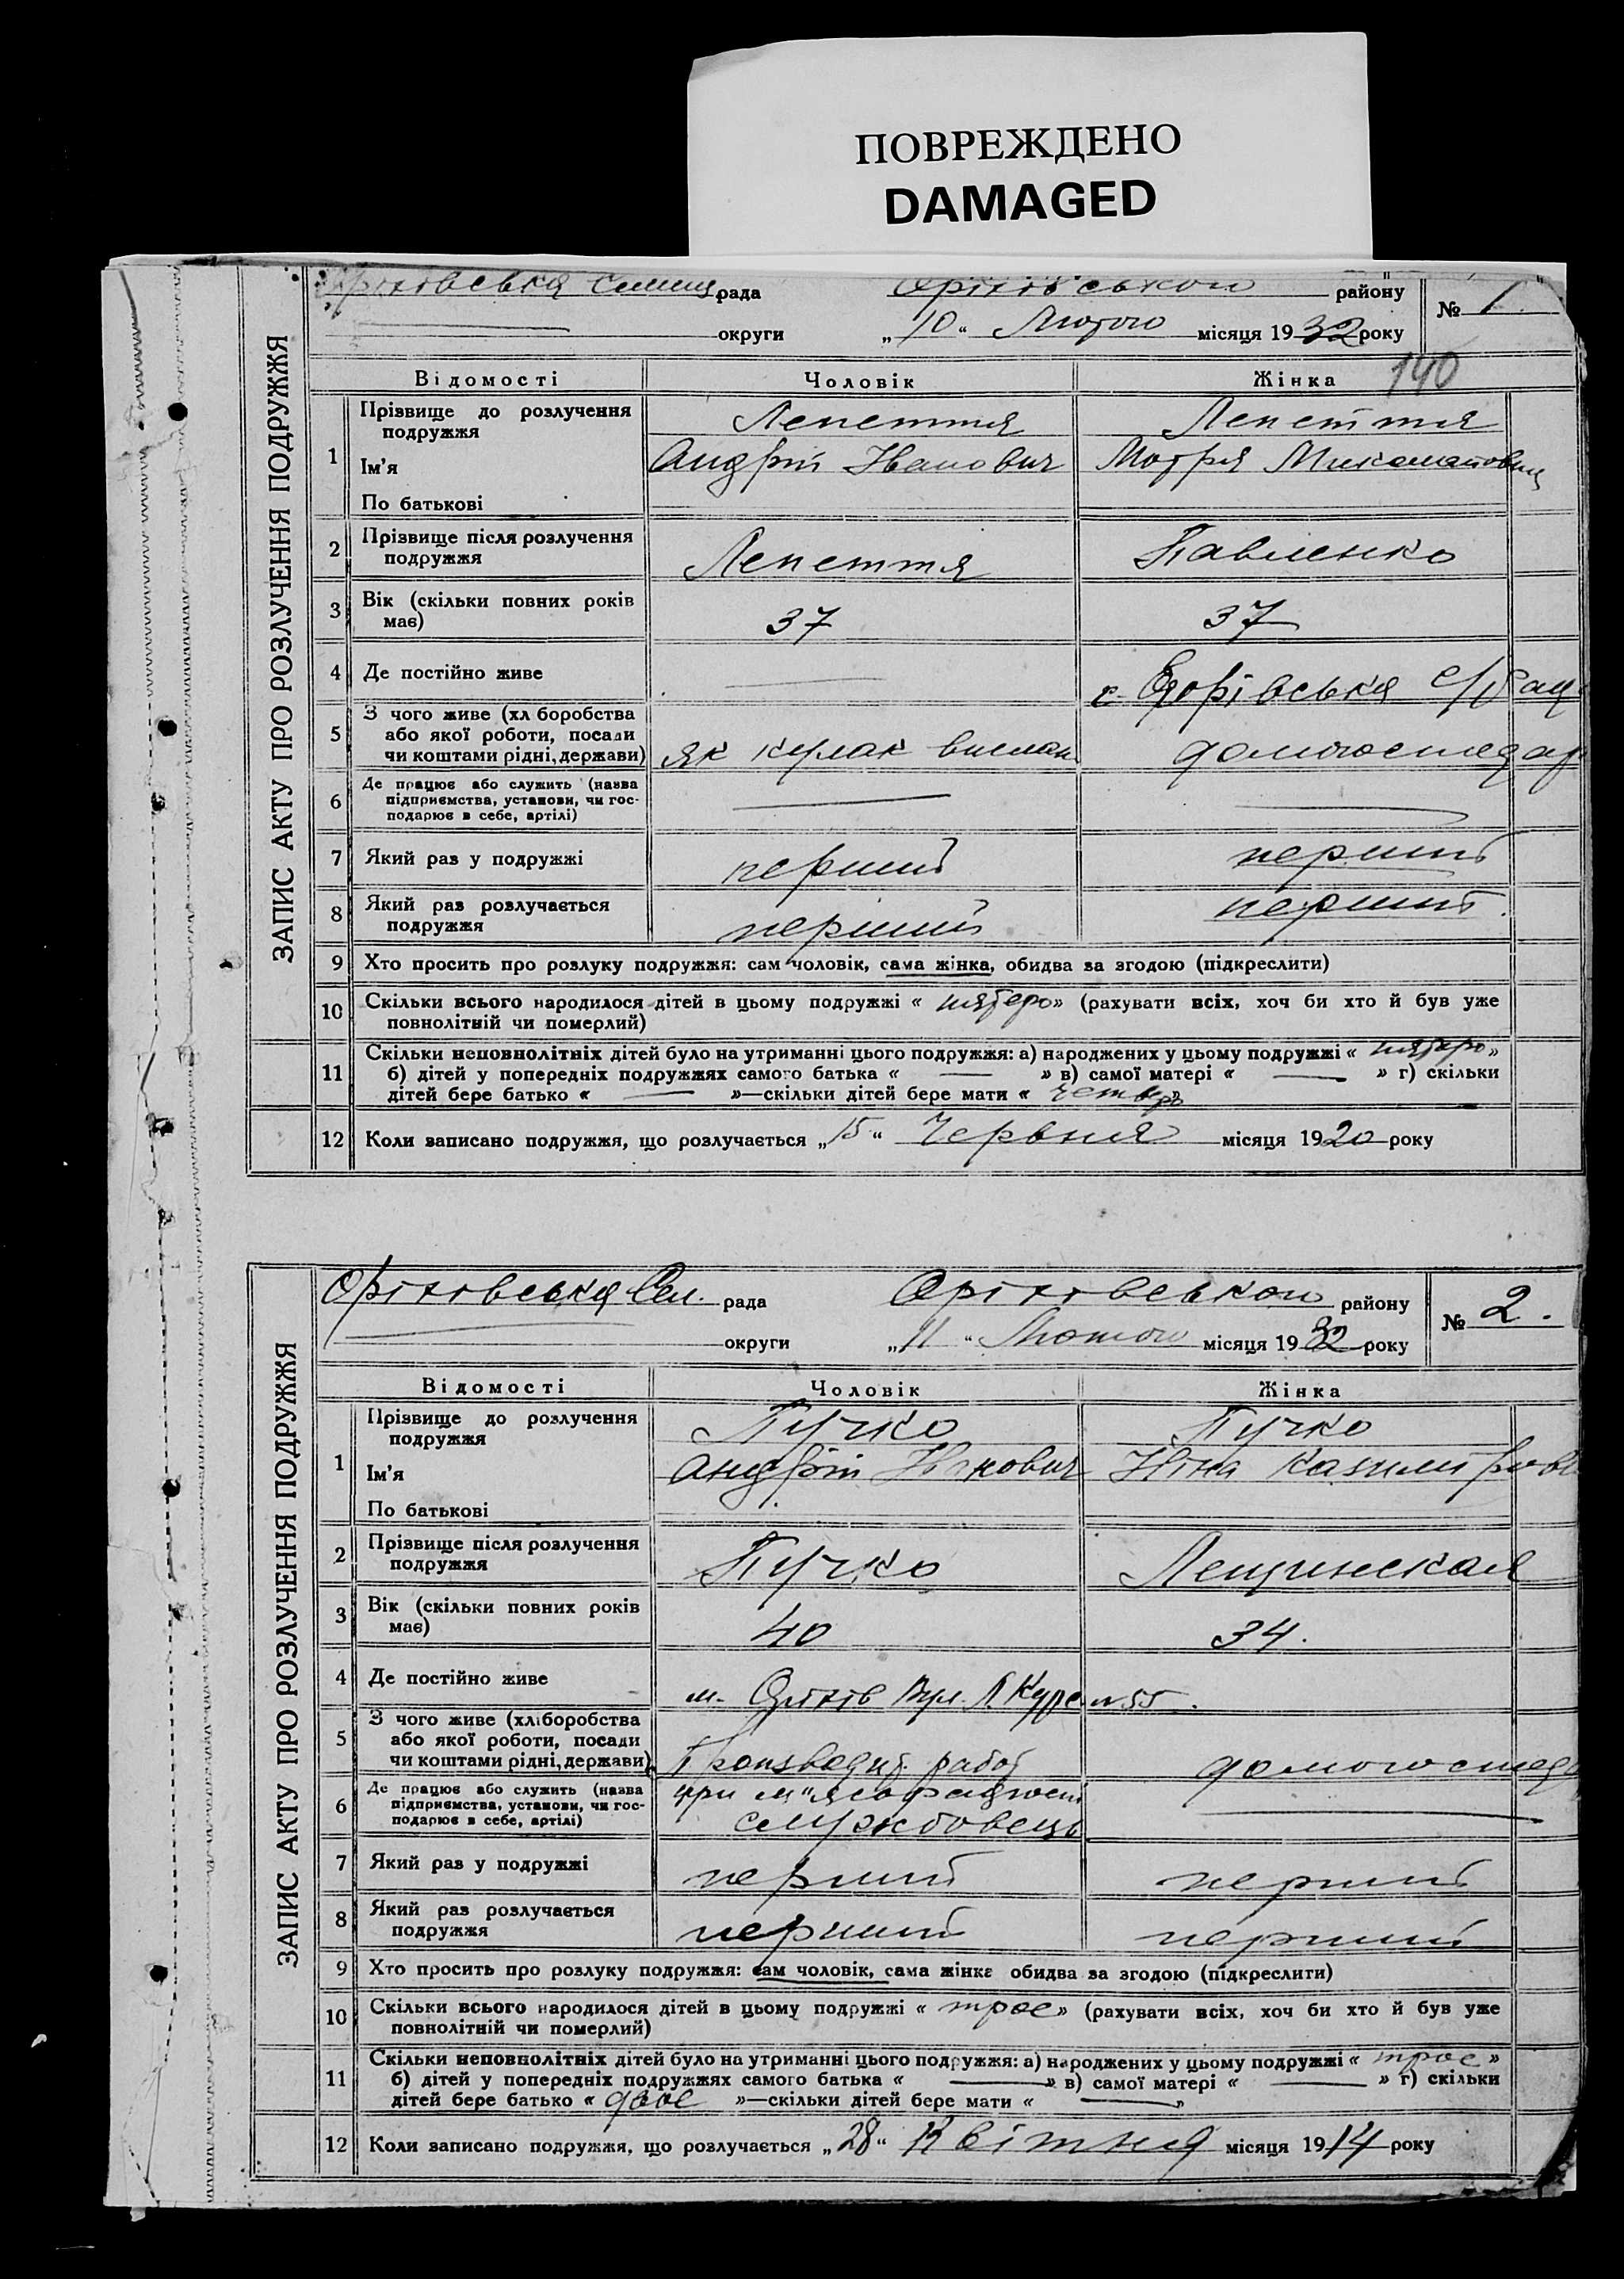 ПОВРЕЖДЕНО
DAMAGED
Оріхівська Селищ рада Оріхівського району № 1.
округи „10“ Лютого місяця 1932 року
140
ЗАПИС АКТУ ПРО РОЗЛУЧЕННЯ ПОДРУЖЖЯ
Відомості Чоловік Жінка
1 Прізвище до розлучення Лепеття Лепеття
подружжя
Ім'я Андрій Іванович Мотря
По батькові
2 Прізвище після розлучення Лепеття Павленко
подружжя
3 Вік (скільки повних років 37 37
має)
4 Де постійно живе с/рад
5 З чого живе (хл боробства
або якої роботи, посади
чи коштами рідні, держави) як куркак вислан домогосподар
6 Де працює або служить (назва
підприємства, установи, чи гос-
подарює в себе, артілі)
7 Який раз у подружжі перший перший
8 Який раз розлучається перший перший.
подружжя
9 Хто просить про розлуку подружжя: сам чоловік, сама жінка, обидва за згодою (підкреслити)
10 Скільки всього народилося дітей в цьому подружжі « пятеро» (рахувати всіх, хоч би хто й був уже
повнолітній чи померлий)
11 Скільки неповнолітніх дітей було на утриманні цього подружжя: а) народжених у цьому подружжі « пятеро»
б) дітей у попередніх подружжях самого батька « — » в) самої матері « — » г) скільки
дітей бере батько « — »—скільки дітей бере мати « четверо»
12 Коли записано подружжя, що розлучається „15“ Червня місяця 1920 року
Оріхівська Сел. рада Оріхівського району № 2.
округи „11“ Лютого місяця 1932 року
ЗАПИС АКТУ ПРО РОЗЛУЧЕННЯ ПОДРУЖЖЯ
Відомості Чоловік Жінка
1 Прізвище до розлучення Пучко Пучко
подружжя
Ім'я Андрій Іванович Ніна Казимирови
По батькові
2 Прізвище після розлучення Пучко Лещинская
подружжя
3 Вік (скільки повних років 40 34.
має)
4 Де постійно живе м. Оріхів Вул. №55.
5 З чого живе (хліборобства
або якої роботи, посади
чи коштами рідні, держави) робот домогоспод
6 Де працює або служить (назва при
підприємства, установи, чи гос- службовець
подарює в себе, артілі)
7 Який раз у подружжі перший перший
8 Який раз розлучається перший перший
подружжя
9 Хто просить про розлуку подружжя: сам чоловік, сама жінка обидва за згодою (підкреслити)
10 Скільки всього народилося дітей в цьому подружжі « троє» (рахувати всіх, хоч би хто й був уже
повнолітній чи померлий)
11 Скільки неповнолітніх дітей було на утриманні цього подружжя: а) народжених у цьому подружжі « троє »
б) дітей у попередніх подружжях самого батька « — » в) самої матері « — » г) скільки
дітей бере батько « двоє »—скільки дітей бере мати « — »
12 Коли записано подружжя, що розлучається „28“ Квітня місяця 1914 року